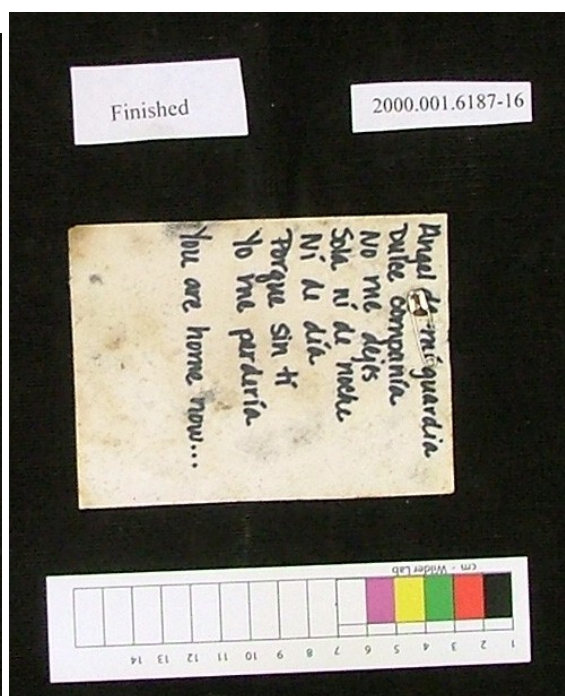 Finished
2000.001.6187-16
Angel de mi guardia
Dulce compañía
No me dejes
Sola ni de noche
Ni de día
Porque sin ti
Yo me perdería
You are home now...
cm - Wilder Lab
1 2 3 4 5 6 7 8 9 10 11 12 13 14